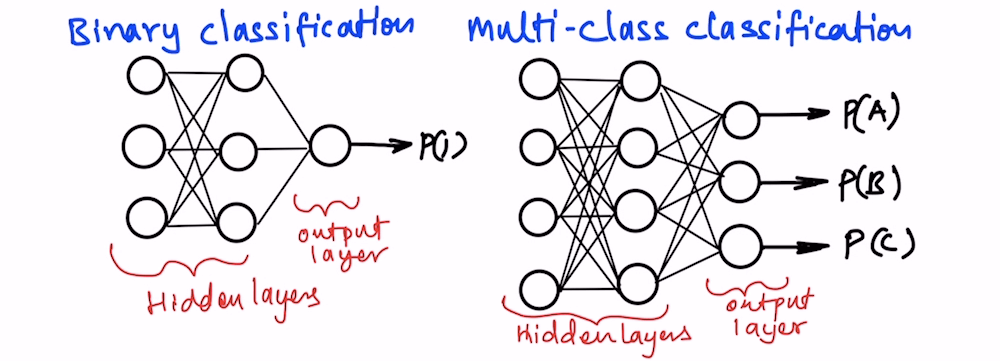 Binary classification
P(1)
output
layer
Hidden layers
multi-class classification
P(A)
P(B)
P(C)
output
layer
Hidden layers